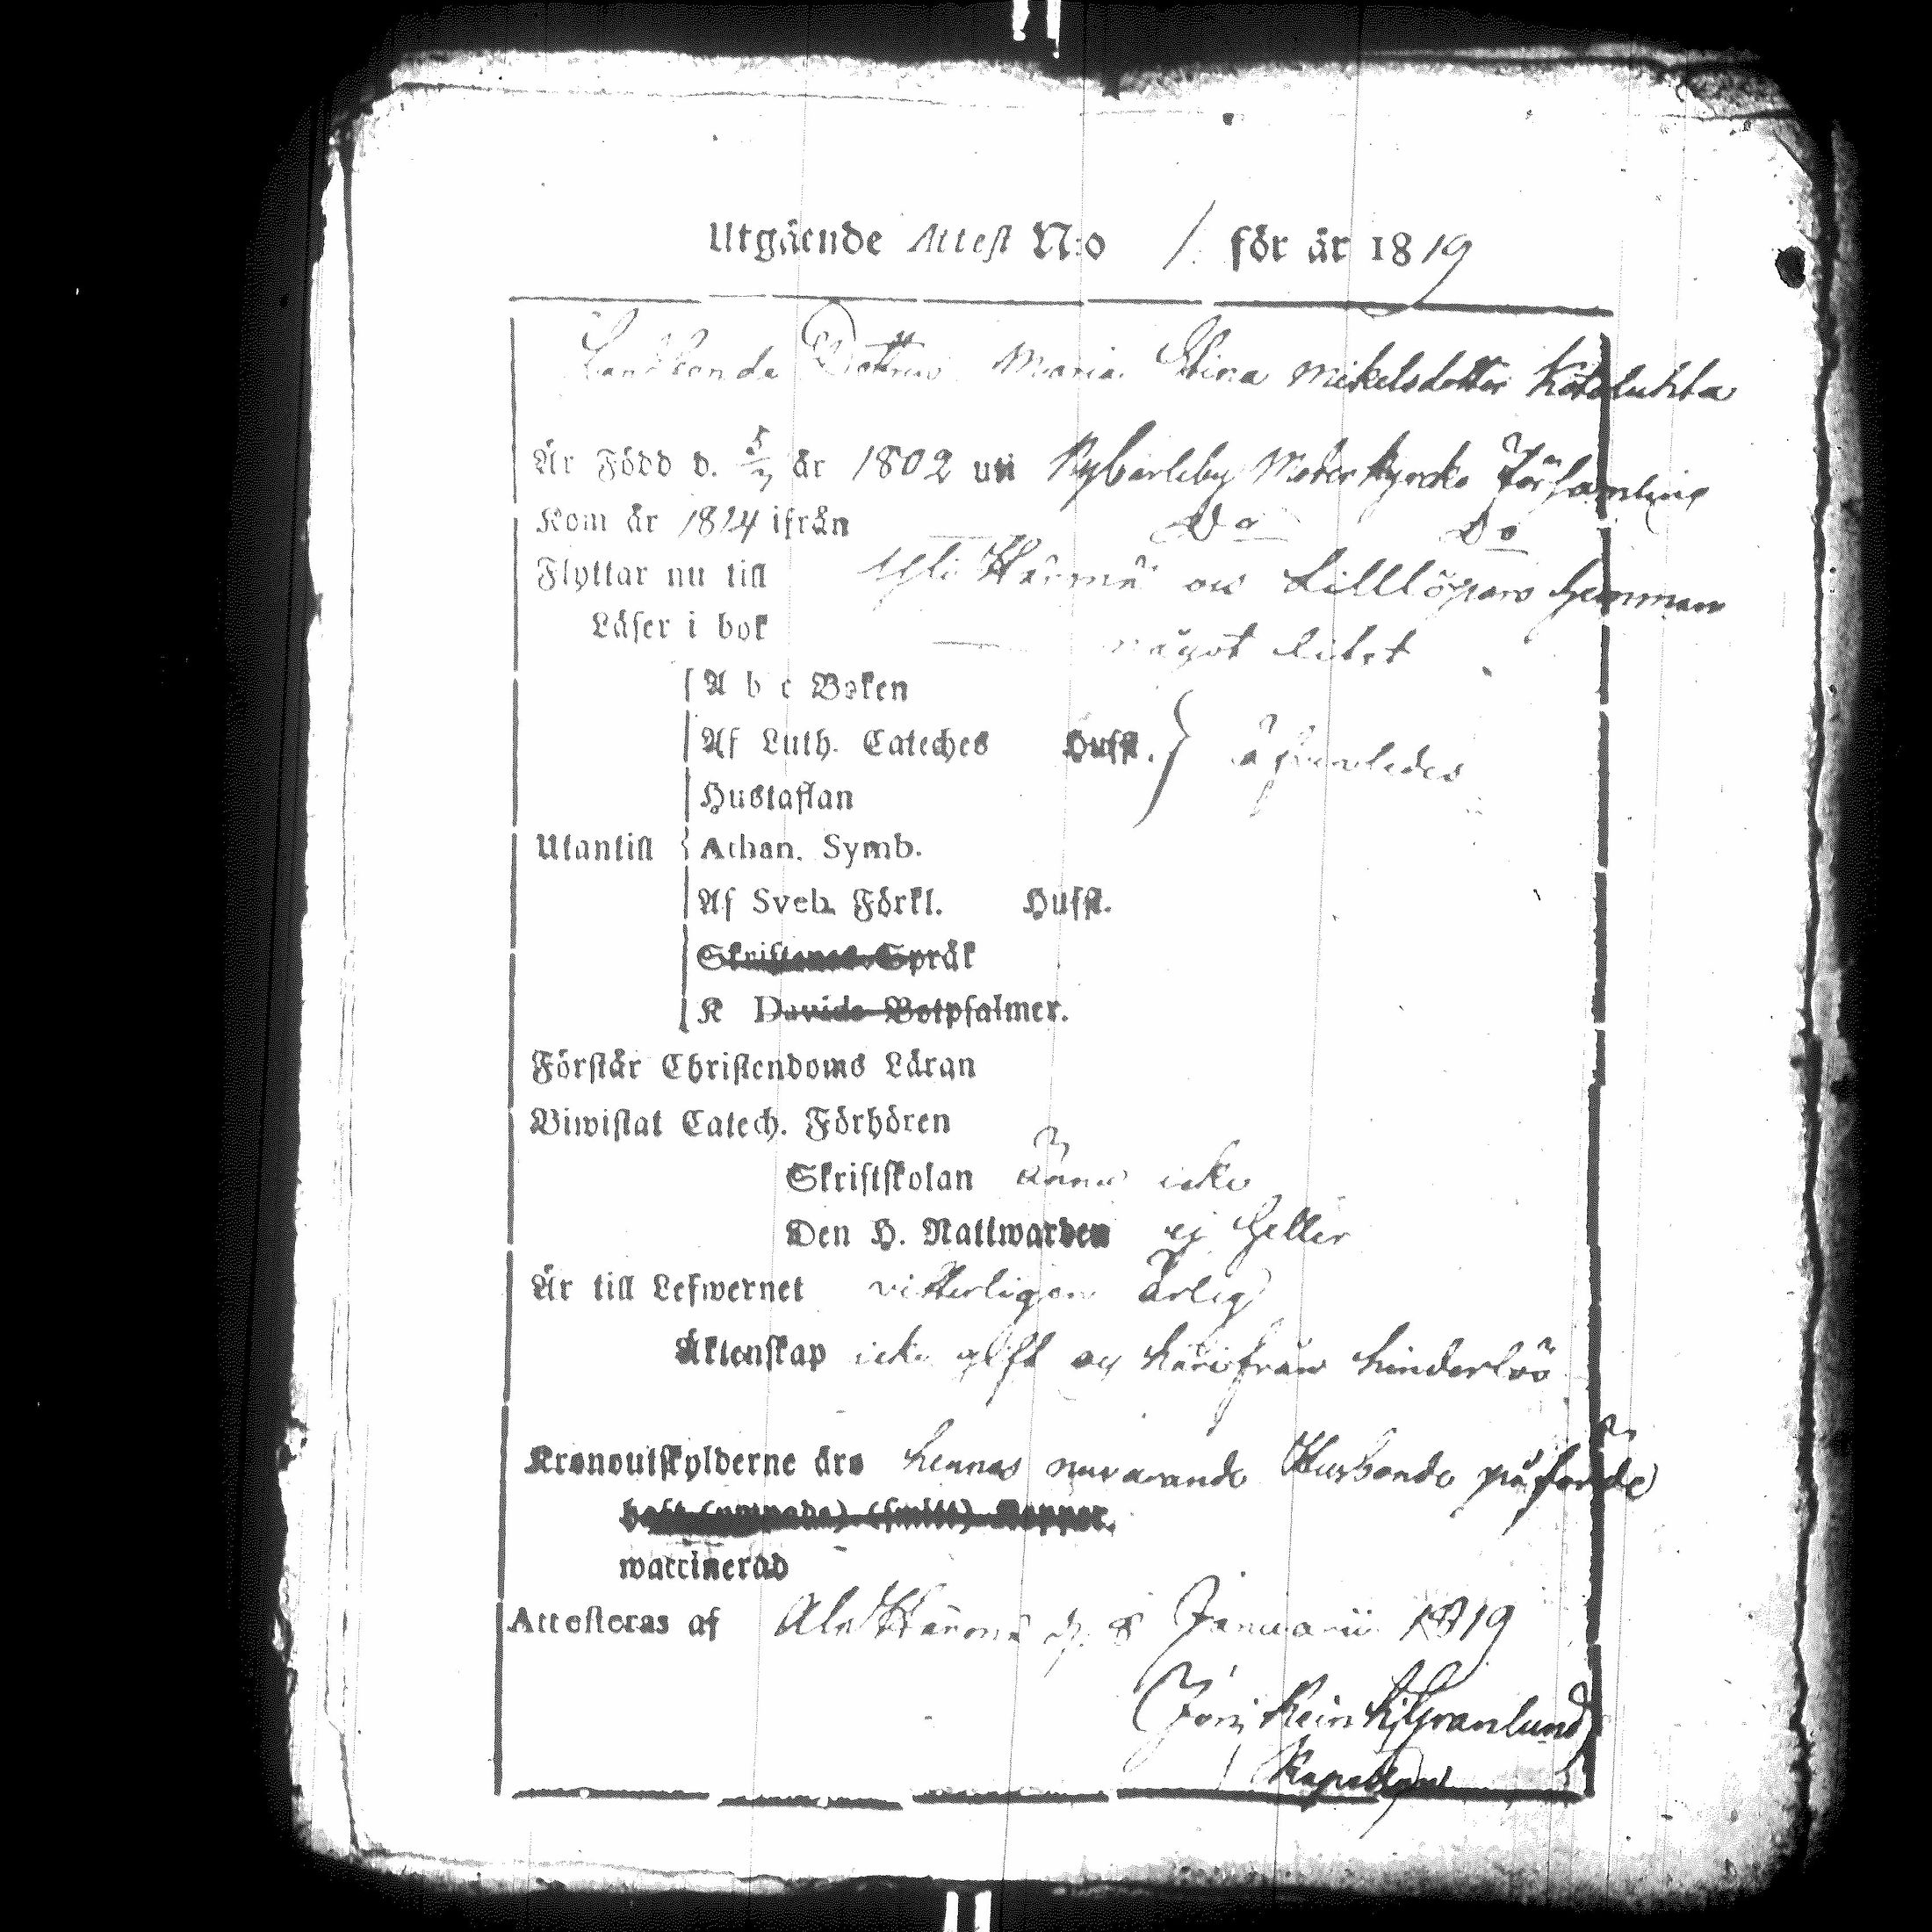 Utgående Attest N:o 1. för år 1819
Landbonde Dottren Maria Stina Mikelsdotter Kotoluhta
Är Född d. 5/7 år 1802 uti Nykarleby Moderkyrcko Församling
Kom år 1814 ifrån Do Do
Flyttar nu till Ylihärmä os Lilllöpars hemman
Läser i bok något litet
A b c Boken
Af Luth. Cateches Hufst. } äfvenledes
Hustaflan
Utantill Athan. Symb.
Af Sveb. Förkl. Hufst.
Skriftenes Språk
K Davids Botpsalmer.
Förstår Christendoms Läran
Biwistat Catech. Förhören
Skriftskolan ännu icke
Den H. Nattwarden ej heller
Är till Lefwernet vitterligen ärlig
Äktenskap icke gift og härifrån hinderlös
Kronoutskylderne äro hennes nuvarande Husbonde påförde
haft (ympade) (smitt) Koppor.
waccinerad
Attesteras af Alahärmä d. 8 Januarii 1819
Granlund
Kapellan